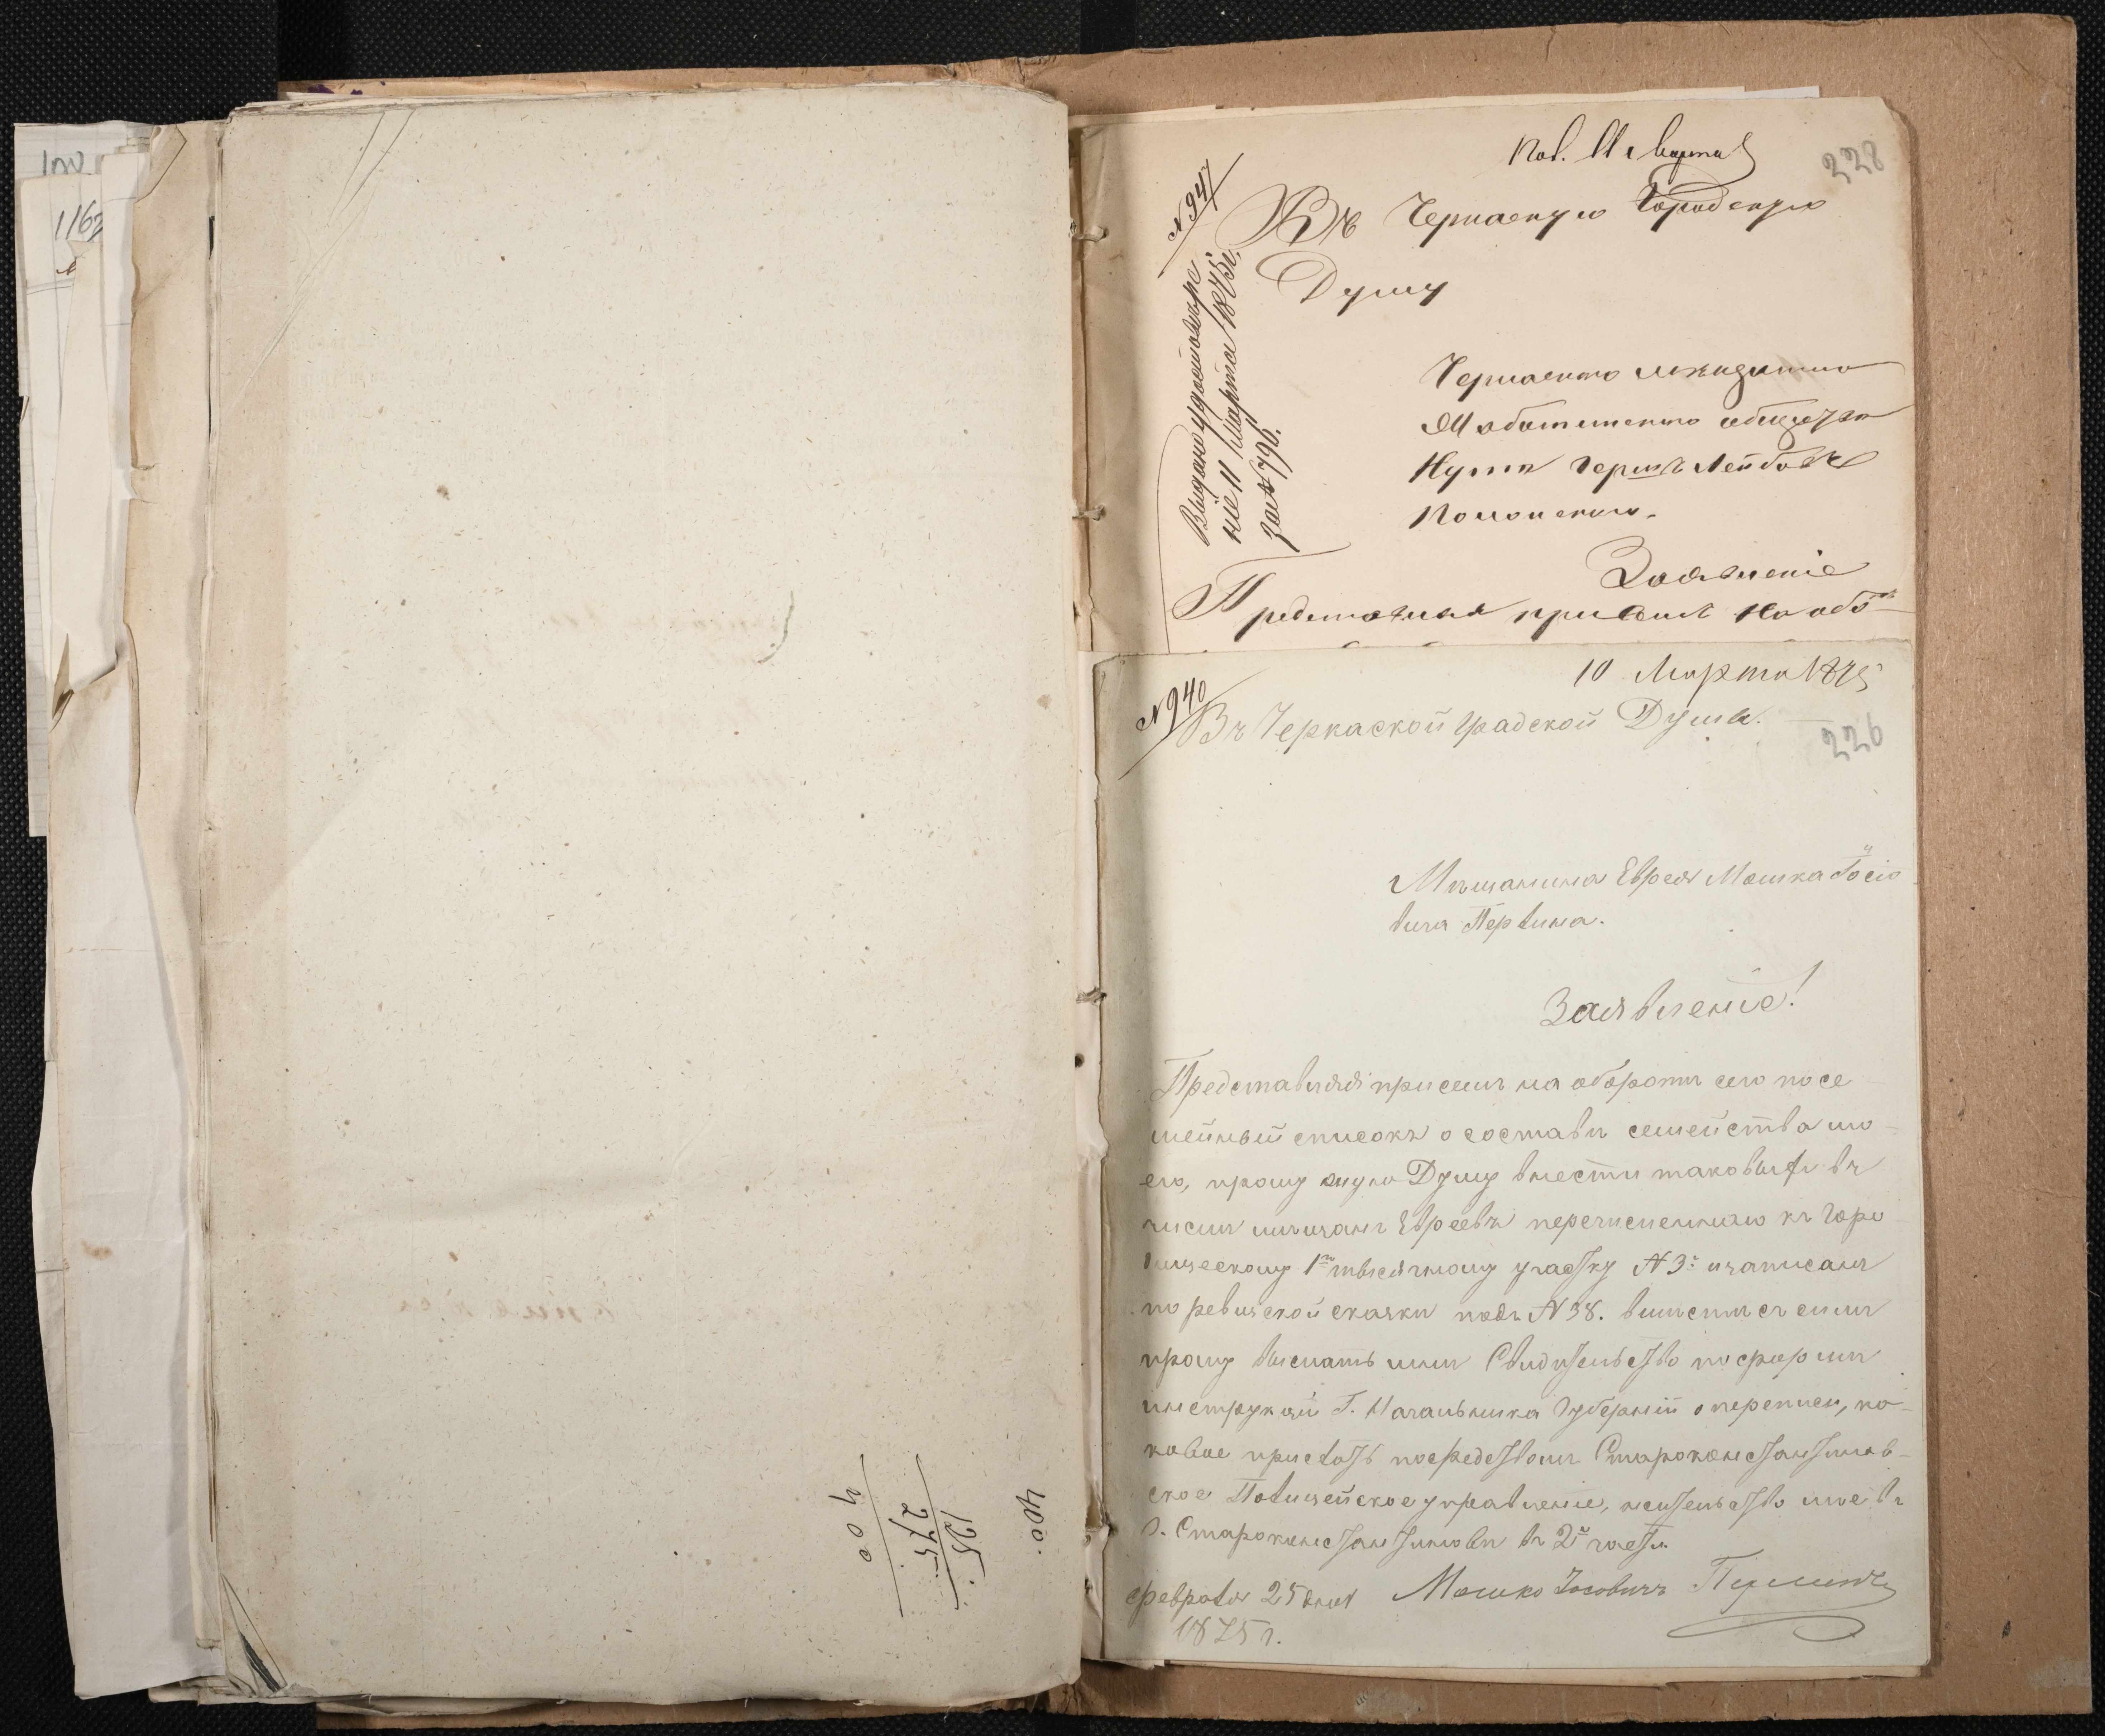 1163
400.
195
275.
400
228
Пол. 11 Марта
№ 947
Въ Черкаскую Городскую
Думу
Выдано удостовѣре
ніе 11 Марта 1875 г.
за № 796.
Черкаского мѣщанина
общества
Герш Лейбов
Заявленіе
Представляя присемъ на обо
10 Марта 1875
№ 940
226
Въ Черкаской Градской Думѣ.
Мѣщанина Еврея Мошка Іосіо
вича Перлина.
Заявленіе!
Представляя присемъ на оборотѣ сего посе
мейный списокъ о составѣ семейства мо-
его, прошу оную Думу внести таковый въ
число мѣщанъ Евреевъ перечисленнаго къ Горо
дищескому 1му тысячному участку № 3: и записанъ
по ревизской сказки подъ № 38. вмѣстѣ съ симъ
прошу выслать мнѣ Свидѣтельство по формѣ
инструкціи Г. Начальника Губерніи о переписи, ка-
ковое прислать посредствомъ Староконстантинов-
ское Полицейское управленіе, жительство мое въ
г. Староконстантиновѣ въ 2й части.
Февраля 25 дня Мошко Іосовичъ Перлинъ
1875 г.